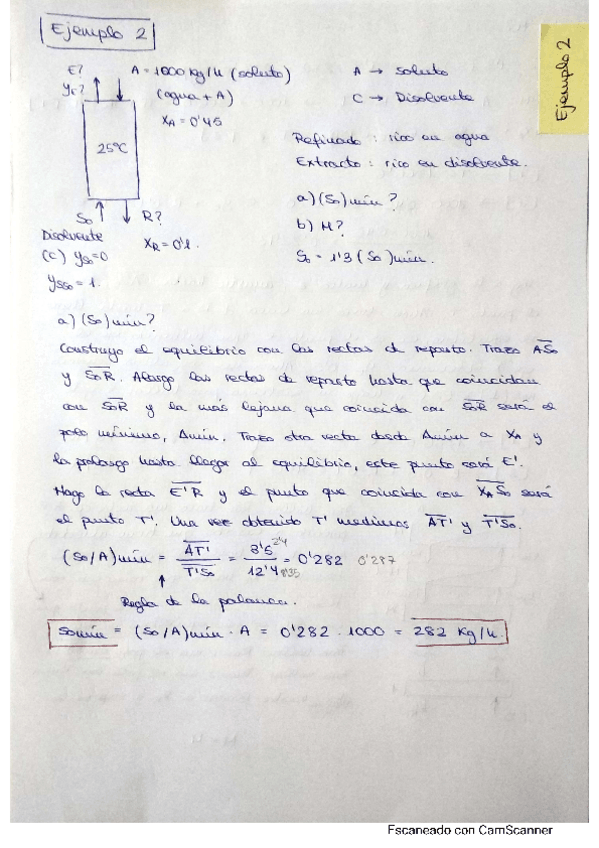 Ejemplo 2
Ejemplo 2
E? A = 1000 Kg/h (soluto)
yE? (agua + A)
XA = 0'45
25ºC
So R?
Disolvente XR = 0'1.
(C) ySo = 0
ySSo = 1.
A → Soluto
C → Disolvente
Refinado : rico en agua
Extracto : rico en disolvente.
a) (So) mín ?
b) M?
So = 1'3 (So) mín.
a) (So) mín?
Construyo el equilibrio con las rectas de reparto. Trazo ASo
y SoR. Alargo las rectas de reparto hasta que coincidan
con SoR y la más lejana que coincida con SoR será el
polo mínimo, Δmín. Trazo otra recta desde Δmín a XA y
la prolongo hasta llegar al equilibrio, este punto será E'.
Hago la recta E'R y el punto que coincida con XASo será
el punto T'. Una vez obtenido T' medimos AT' y T'So.
(So/A) mín = AT' / T'So = 3'5 / 12'4 = 0'282 0'287
2'4
8'35
Regla de la palanca.
Somín = (So/A) mín · A = 0'282 · 1000 = 282 Kg/h.
Escaneado con CamScanner